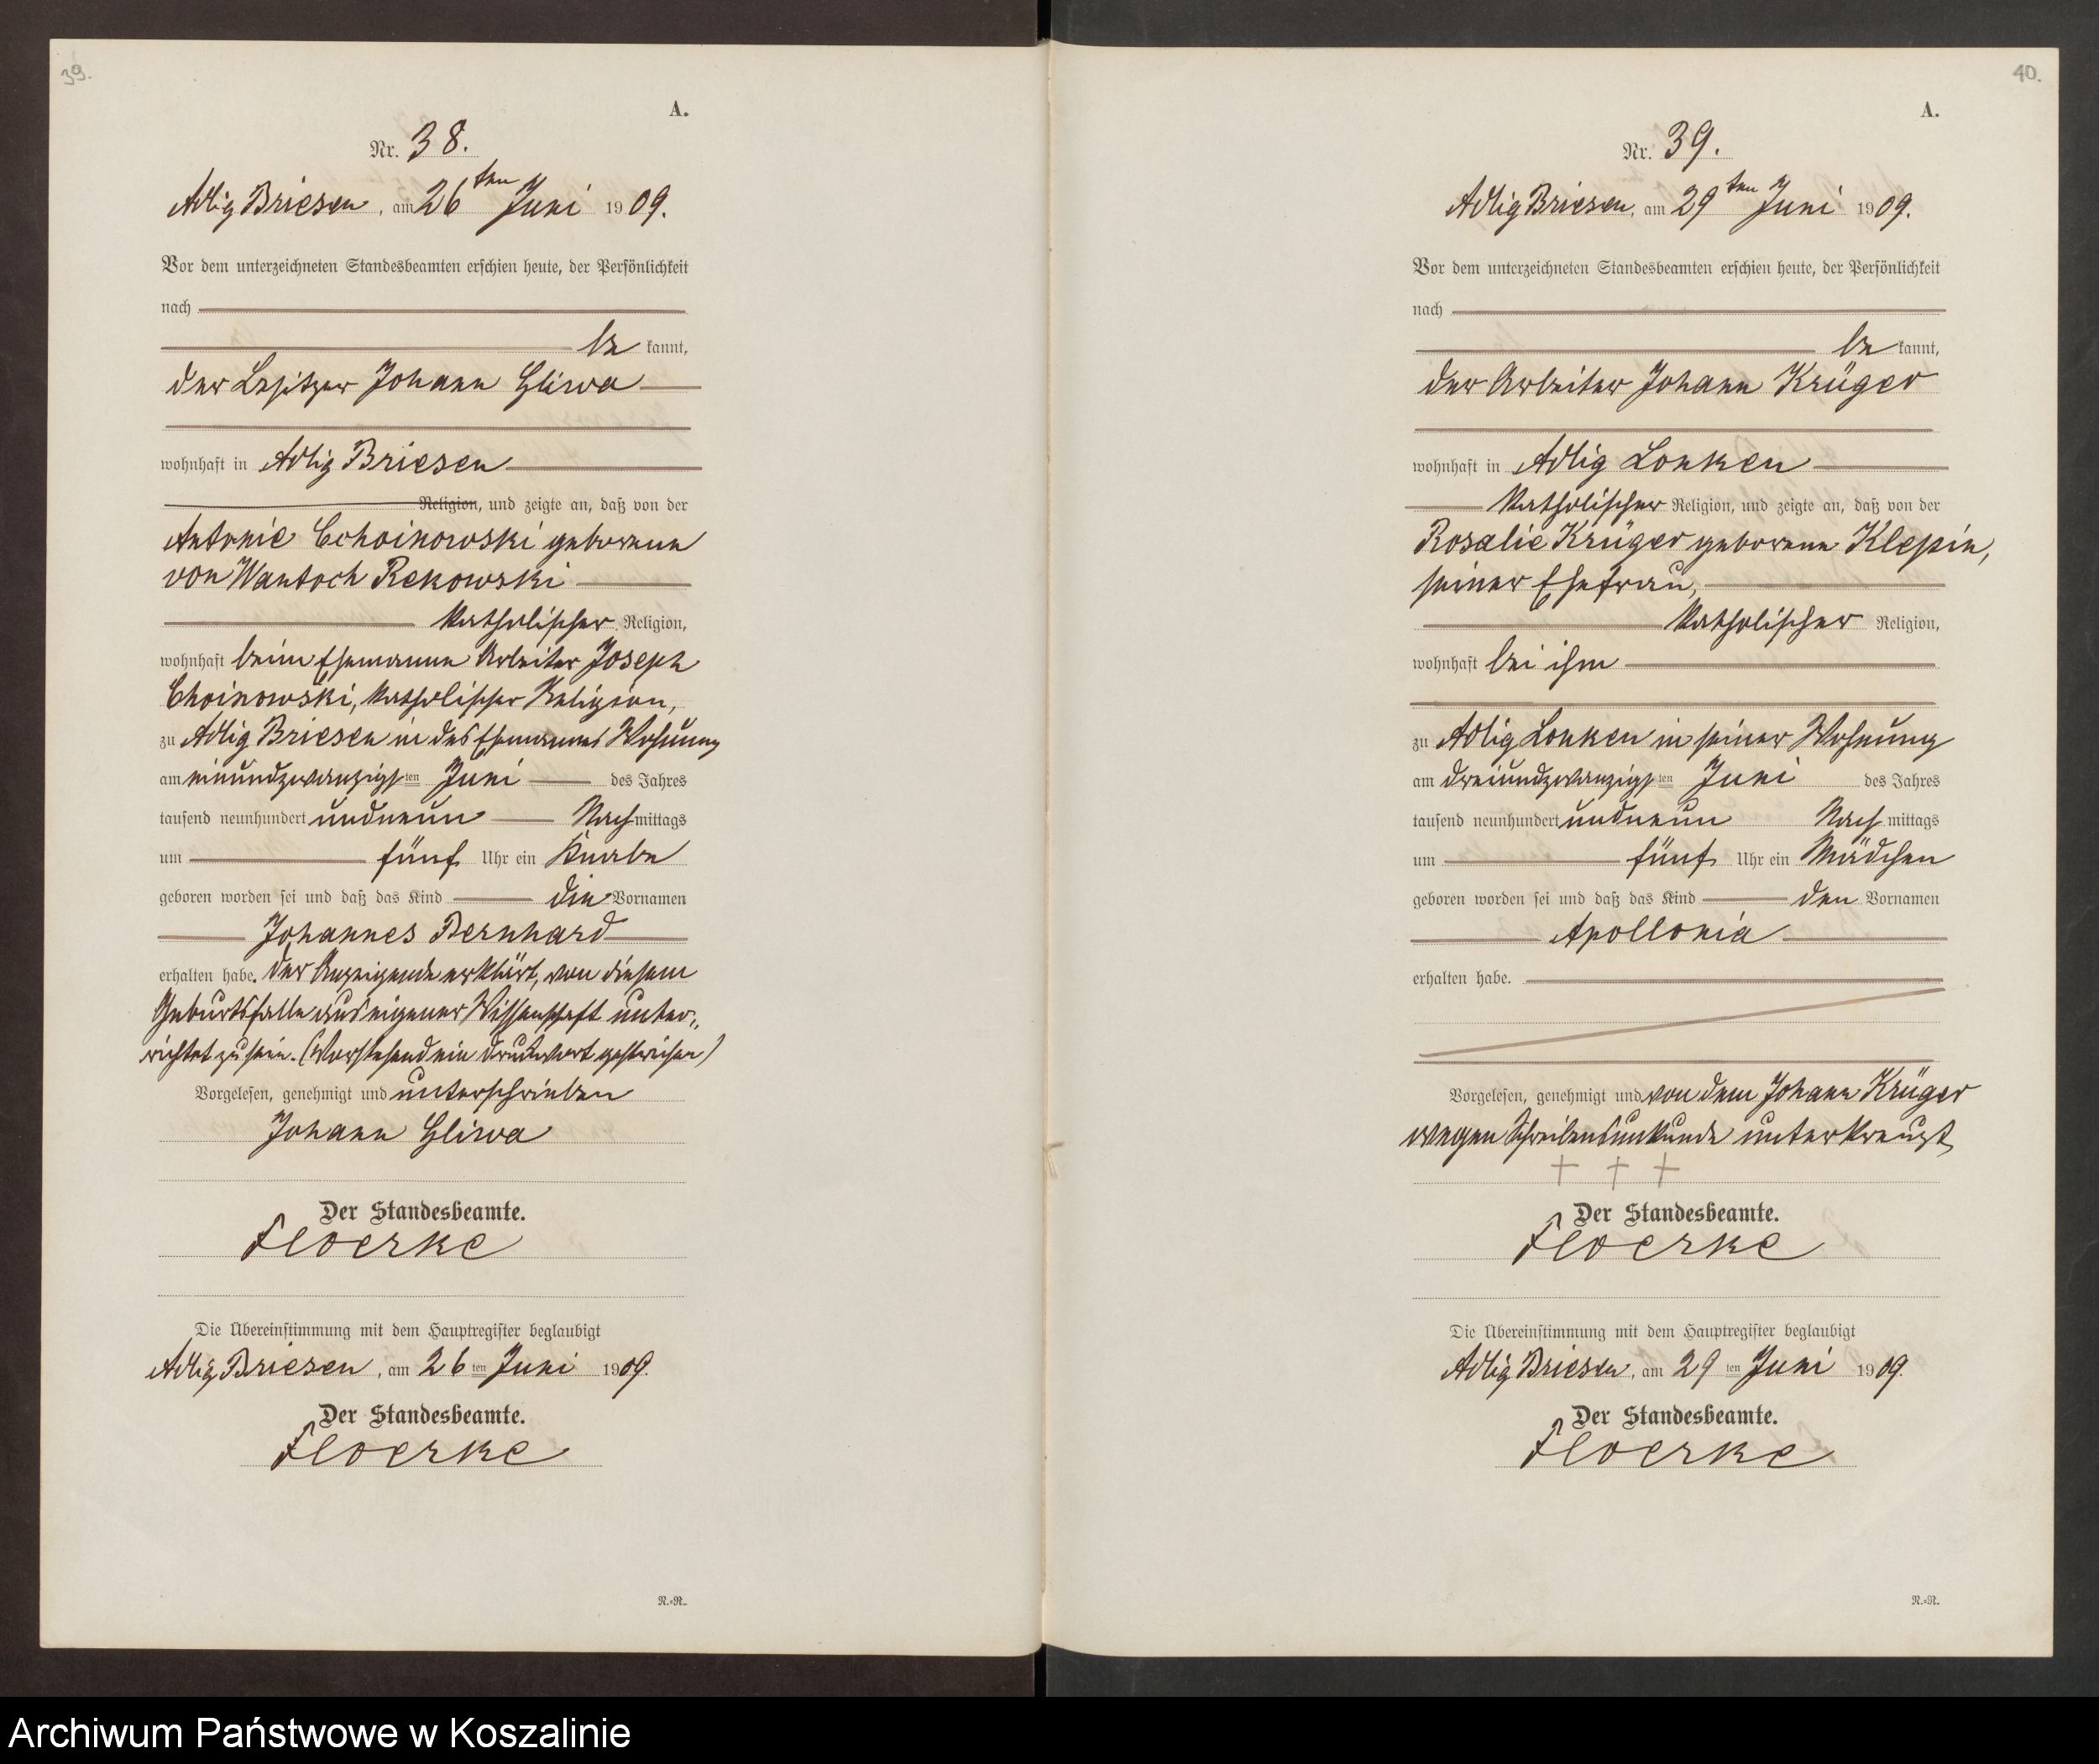 39.
A.
Nr. 38.
Adlig Briesen, am 26ten Juni 1909.
Vor dem unterzeichneten Standesbeamten erschien heute, der Persönlichkeit
nach
be kannt,
der Besitzer Johann Gliwa
wohnhaft in Adlig Briesen
Religion, und zeigte an, daß von der
Antonie Cchoinowski geborene
von Wantoch Rekowski
katholischer Religion,
wohnhaft beim Ehemanne Arbeiter Joseph
Choinowski, katholischer Religion,
zu Adlig Briesen in des Ehemannes Wohnung
am einundzwanzigsten Juni des Jahres
tausend neunhundert undneun Nachmittags
um fünf Uhr ein Knabe
geboren worden sei und daß das Kind die Vornamen
Johannes Bernhard
erhalten habe. Der Anzeigende erklärt, von diesem
Geburtsfalle aus eigener Wissenschaft unter„
richtet zu sein. (Vorstehend ein Druckwort gestrichen)
Vorgelesen, genehmigt und unterschrieben
Johann Gliwa
Der Standesbeamte.
Floerke
Die Übereinstimmung mit dem Hauptregister beglaubigt
Adlig Briesen, am 26ten Juni 1909.
Der Standesbeamte.
Floerke
R.=R.
40.
A.
Nr. 39.
Adlig Briesen, am 29ten Juni 1909.
Vor dem unterzeichneten Standesbeamten erschien heute, der Persönlichkeit
nach
be kannt,
der Arbeiter Johann Krüger
wohnhaft in Adlig Lonken
katholischer Religion, und zeigte an, daß von der
Rosalie Krüger geborene Klepin,
seiner Ehefrau,
katholischer Religion,
wohnhaft bei ihm
zu Adlig Lonken in seiner Wohnung
am dreiundzwanzigsten Juni des Jahres
tausend neunhundert undneun Nachmittags
um fünf Uhr ein Mädchen
geboren worden sei und daß das Kind den Vornamen
Apollonia
erhalten habe.
Vorgelesen, genehmigt und von dem Johann Krüger
wegen Schreibensunkunde unterkreuzt
+ + +
Der Standesbeamte.
Floerke
Die Übereinstimmung mit dem Hauptregister beglaubigt
Adlig Briesen, am 29ten Juni 1909.
Der Standesbeamte.
Floerke
R.=R.
Archiwum Państwowe w Koszalinie